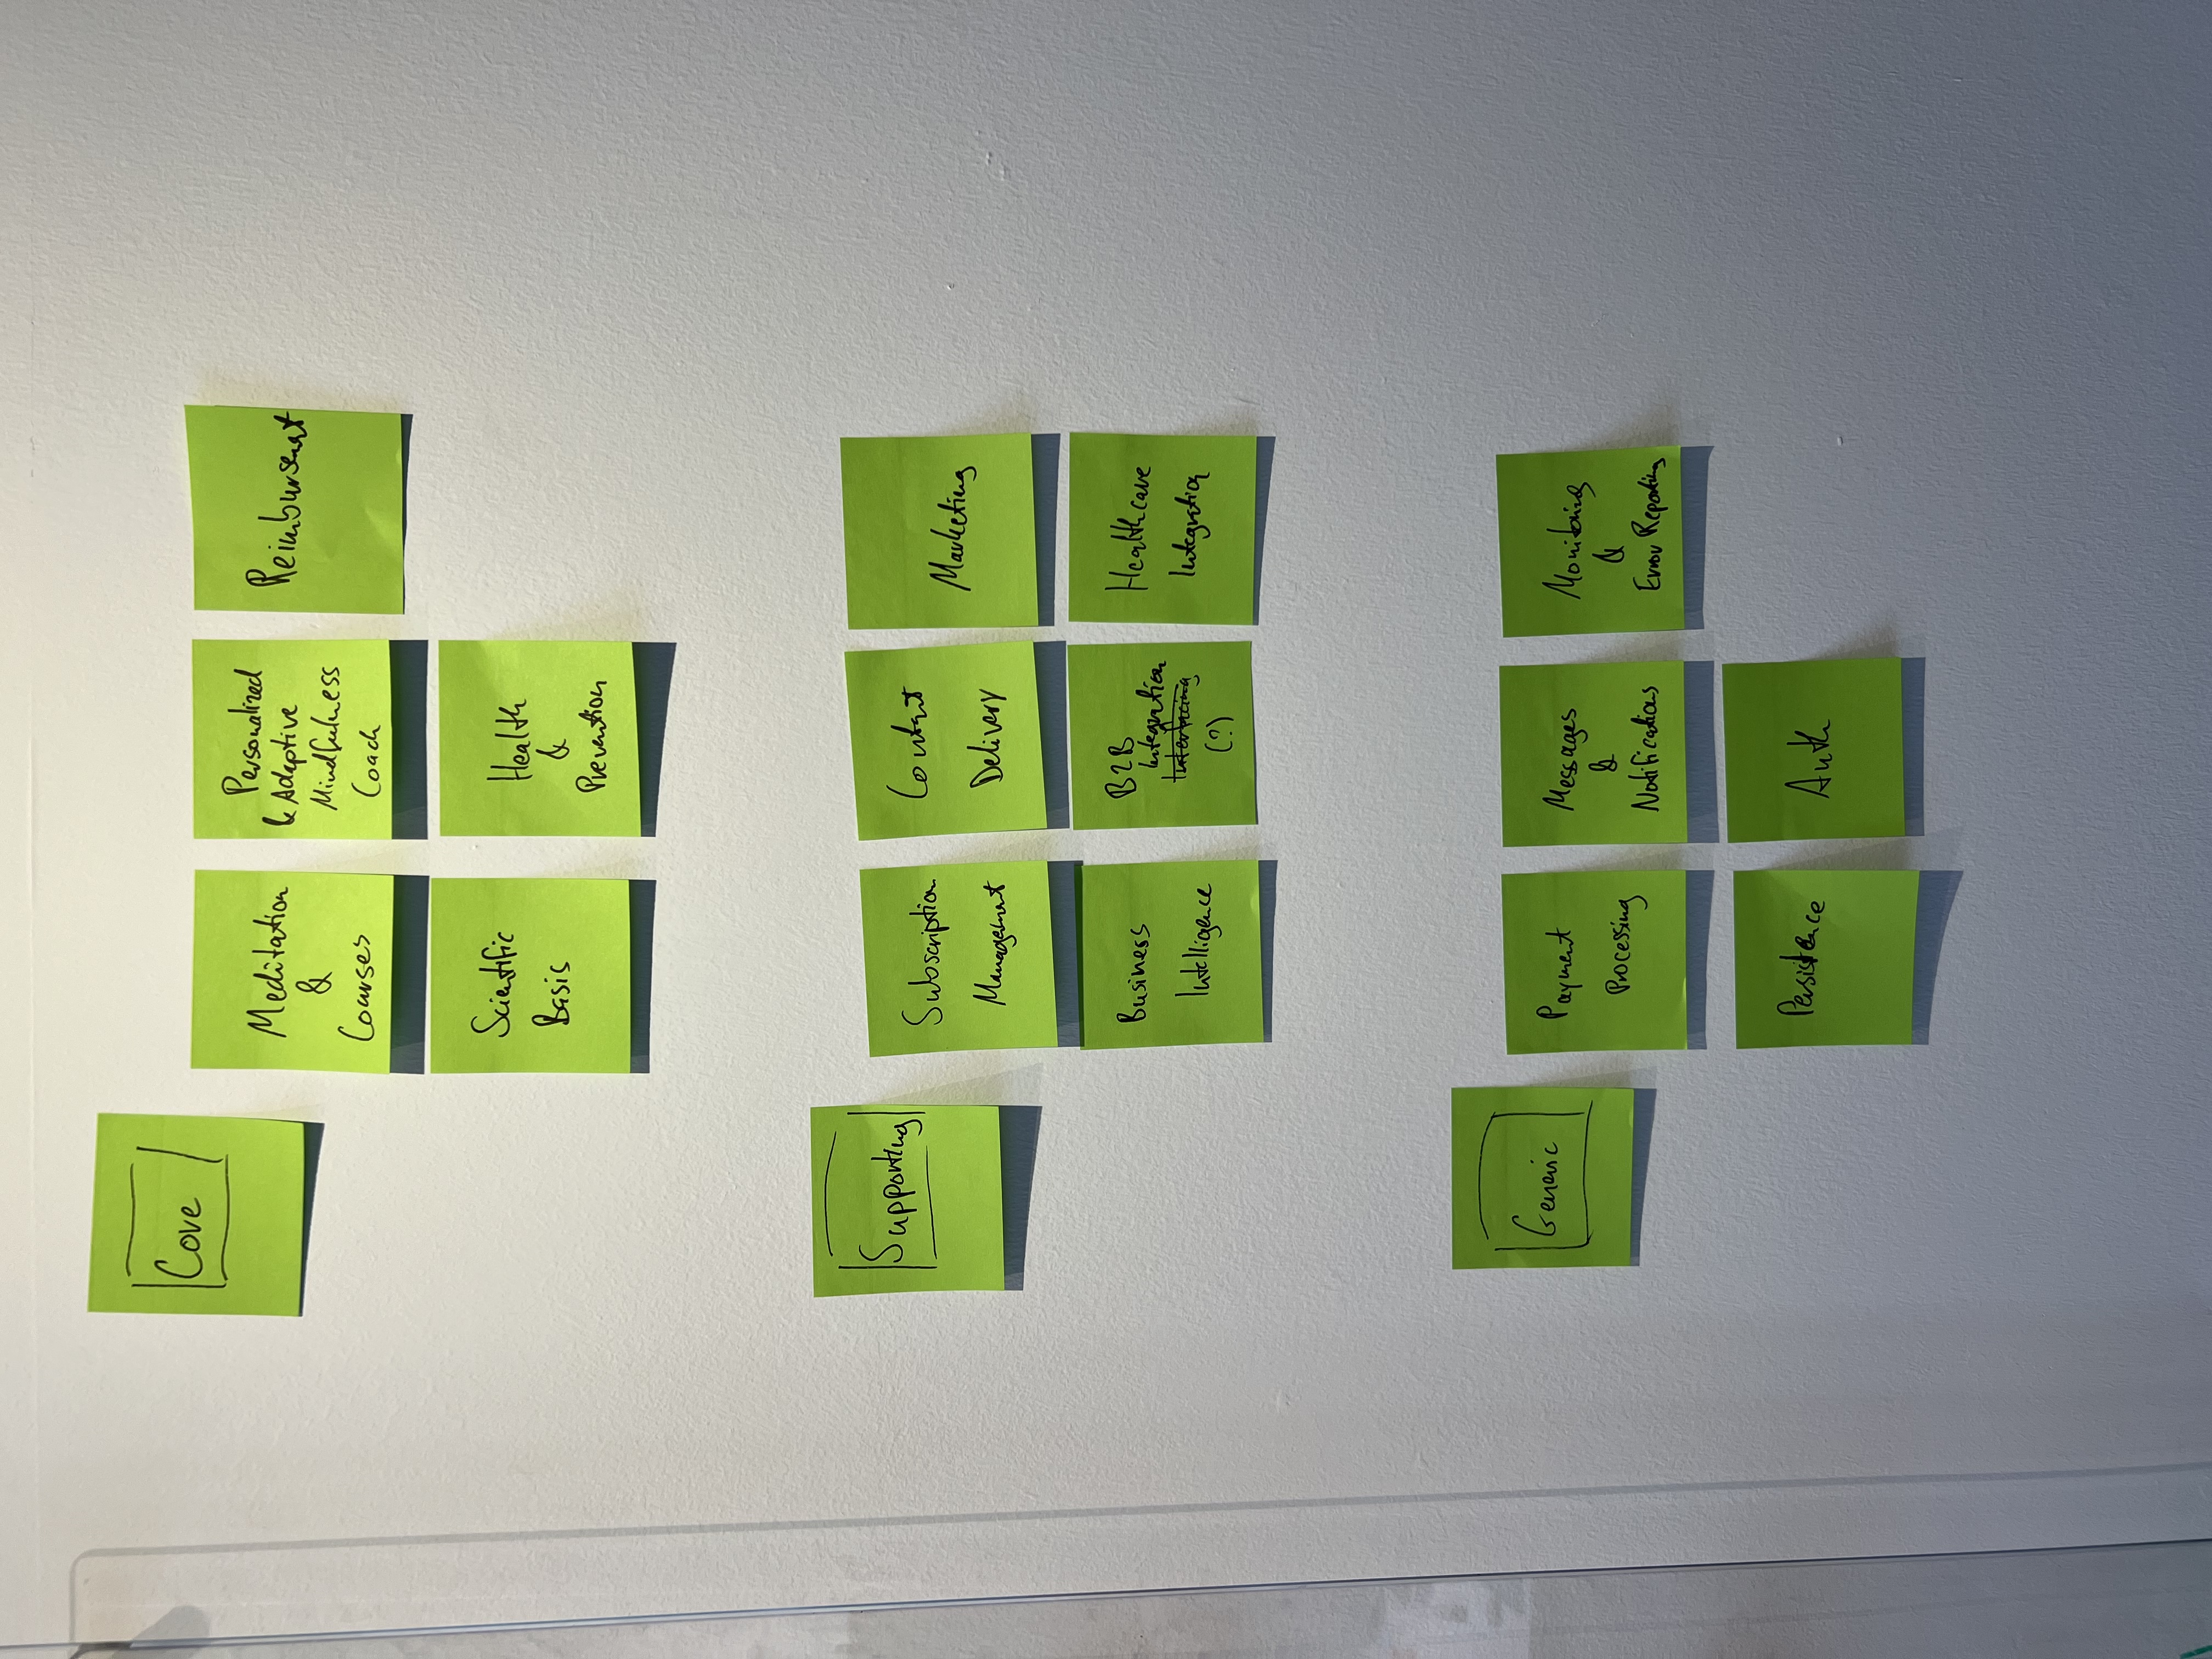 Core
Meditation
&
Courses
Personalized
& Adaptive
Mindfulness
Coach
Reimbursement
Scientific
Basis
Health
&
Prevention
Supporting
Subscription
Management
Content
Delivery
Marketing
Business
Intelligence
B2B
Integration
Interfacing
(?)
Healthcare
Integration
Generic
Payment
Processing
Messages
&
Notifications
Monitoring
&
Error Reporting
Persistence
Auth